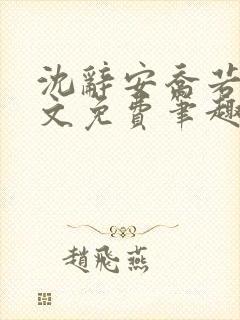 沈辭安喬若
文免費筆趣
趙飛燕